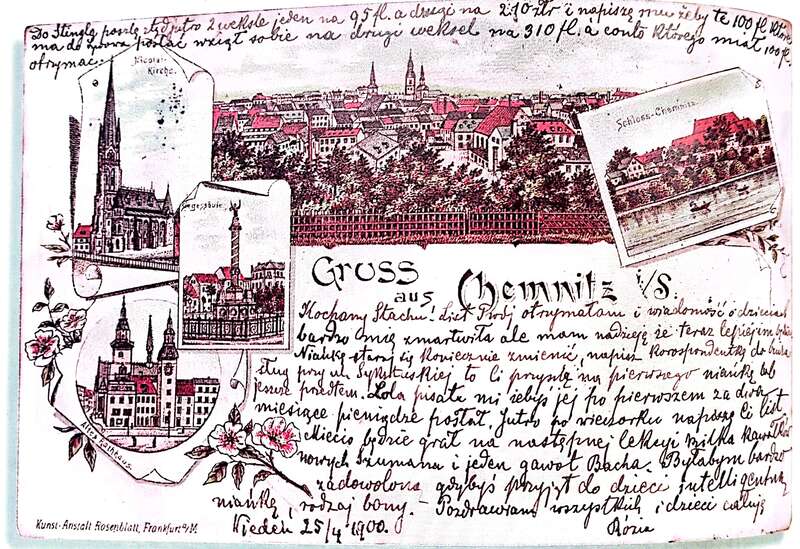 Do Stingla poszlę stąd jutro 2 weksle jeden na 95 fl. a drugi na 210 złr i napiszę mu żeby te 100 fl. które
ma do zwrotu wziąt sobie na drugi weksel na 310 fl. a conto którego miał 100 fl.
otrzymać.
Nicolai-
Kirche.
Schloss-Chemnitz.
Siegessäule.
Gruss
aus Chemnitz i/S.
Kochany Stachu! List Twój otrzymałam i wiadomość o dzieciach
bardzo mię zmartwiła ale mam nadzieję że teraz lepiej im będzie
Niańkę staraj się koniecznie zmienić, napisz korespondentkę do biura
sług przy ul. Sykstuskiej to Ci przyszlą na pierwszego niańkę lub
jeszcze przedtem. Lola pisała mi żebyś jej po pierwszem za dwa
miesiące pieniądze posłał. Jutro po wieczorku napiszę Ci list
Miecio będzie grał na następnej lekcyi kilka kawałków
nowych Szumana i jeden gawot Bacha. Byłabym bardzo
zadowolona gdybyś przyjął do dzieci intelligentną
niańkę, rodzaj bony. - Pozdrawiam wszystkich i dzieci całuję
Wiedeń 25/4 1900. Rózia
Altes Rathaus.
Kunst-Anstalt Rosenblatt, Frankfurt a/M.